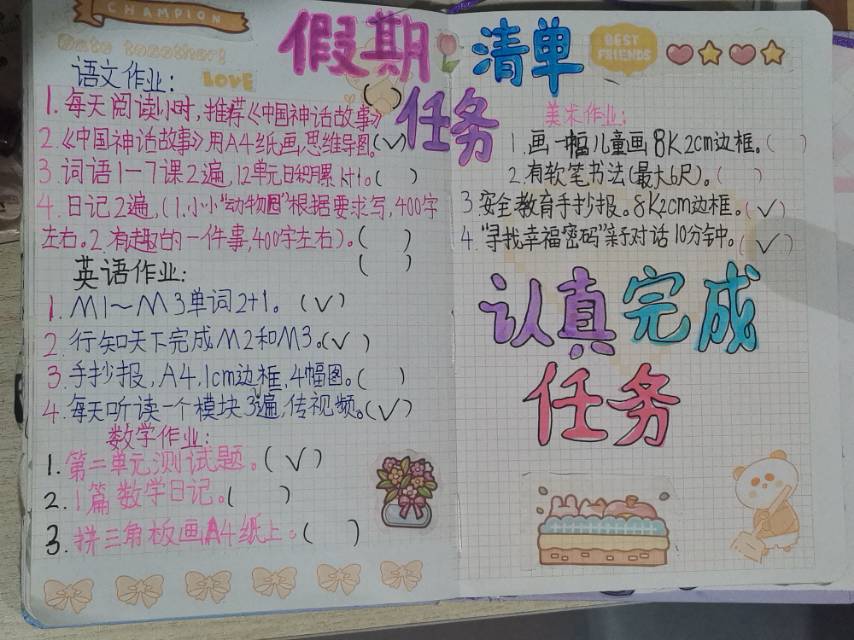 CHAMPION
Date together!
LOVE
假期
任务
清单
BEST
FRIENDS
语文作业:
1.每天阅读1小时,推荐《中国神话故事》( )
2.《中国神话故事》用A4纸画思维导图。(✓)
3.词语1一7课2遍,12单元日积月累
4.日记2遍,(1.小小“动物园”根据要求写,400字
左右。2.有趣的一件事,400字左右)。( )
( )
英语作业:
1.M1~M3单词2+1。(✓)
2.行知天下完成M2和M3。(✓)
3.手抄报,A4,1cm边框,4幅图。( )
4.每天听读一个模块3遍,传视频。(✓)
数学作业:
1.第二单元测试题。(✓)
2.1篇数学日记。( )
3.拼三角板画A4纸上。( )
美术作业:
1.画一幅儿童画8K2cm边框。( )
2.有软笔书法(最大6尺)。( )
3.安全教育手抄报。8K2cm边框。(✓)
4.“寻找幸福密码”亲子对话10分钟。(✓)
认真完成
任务